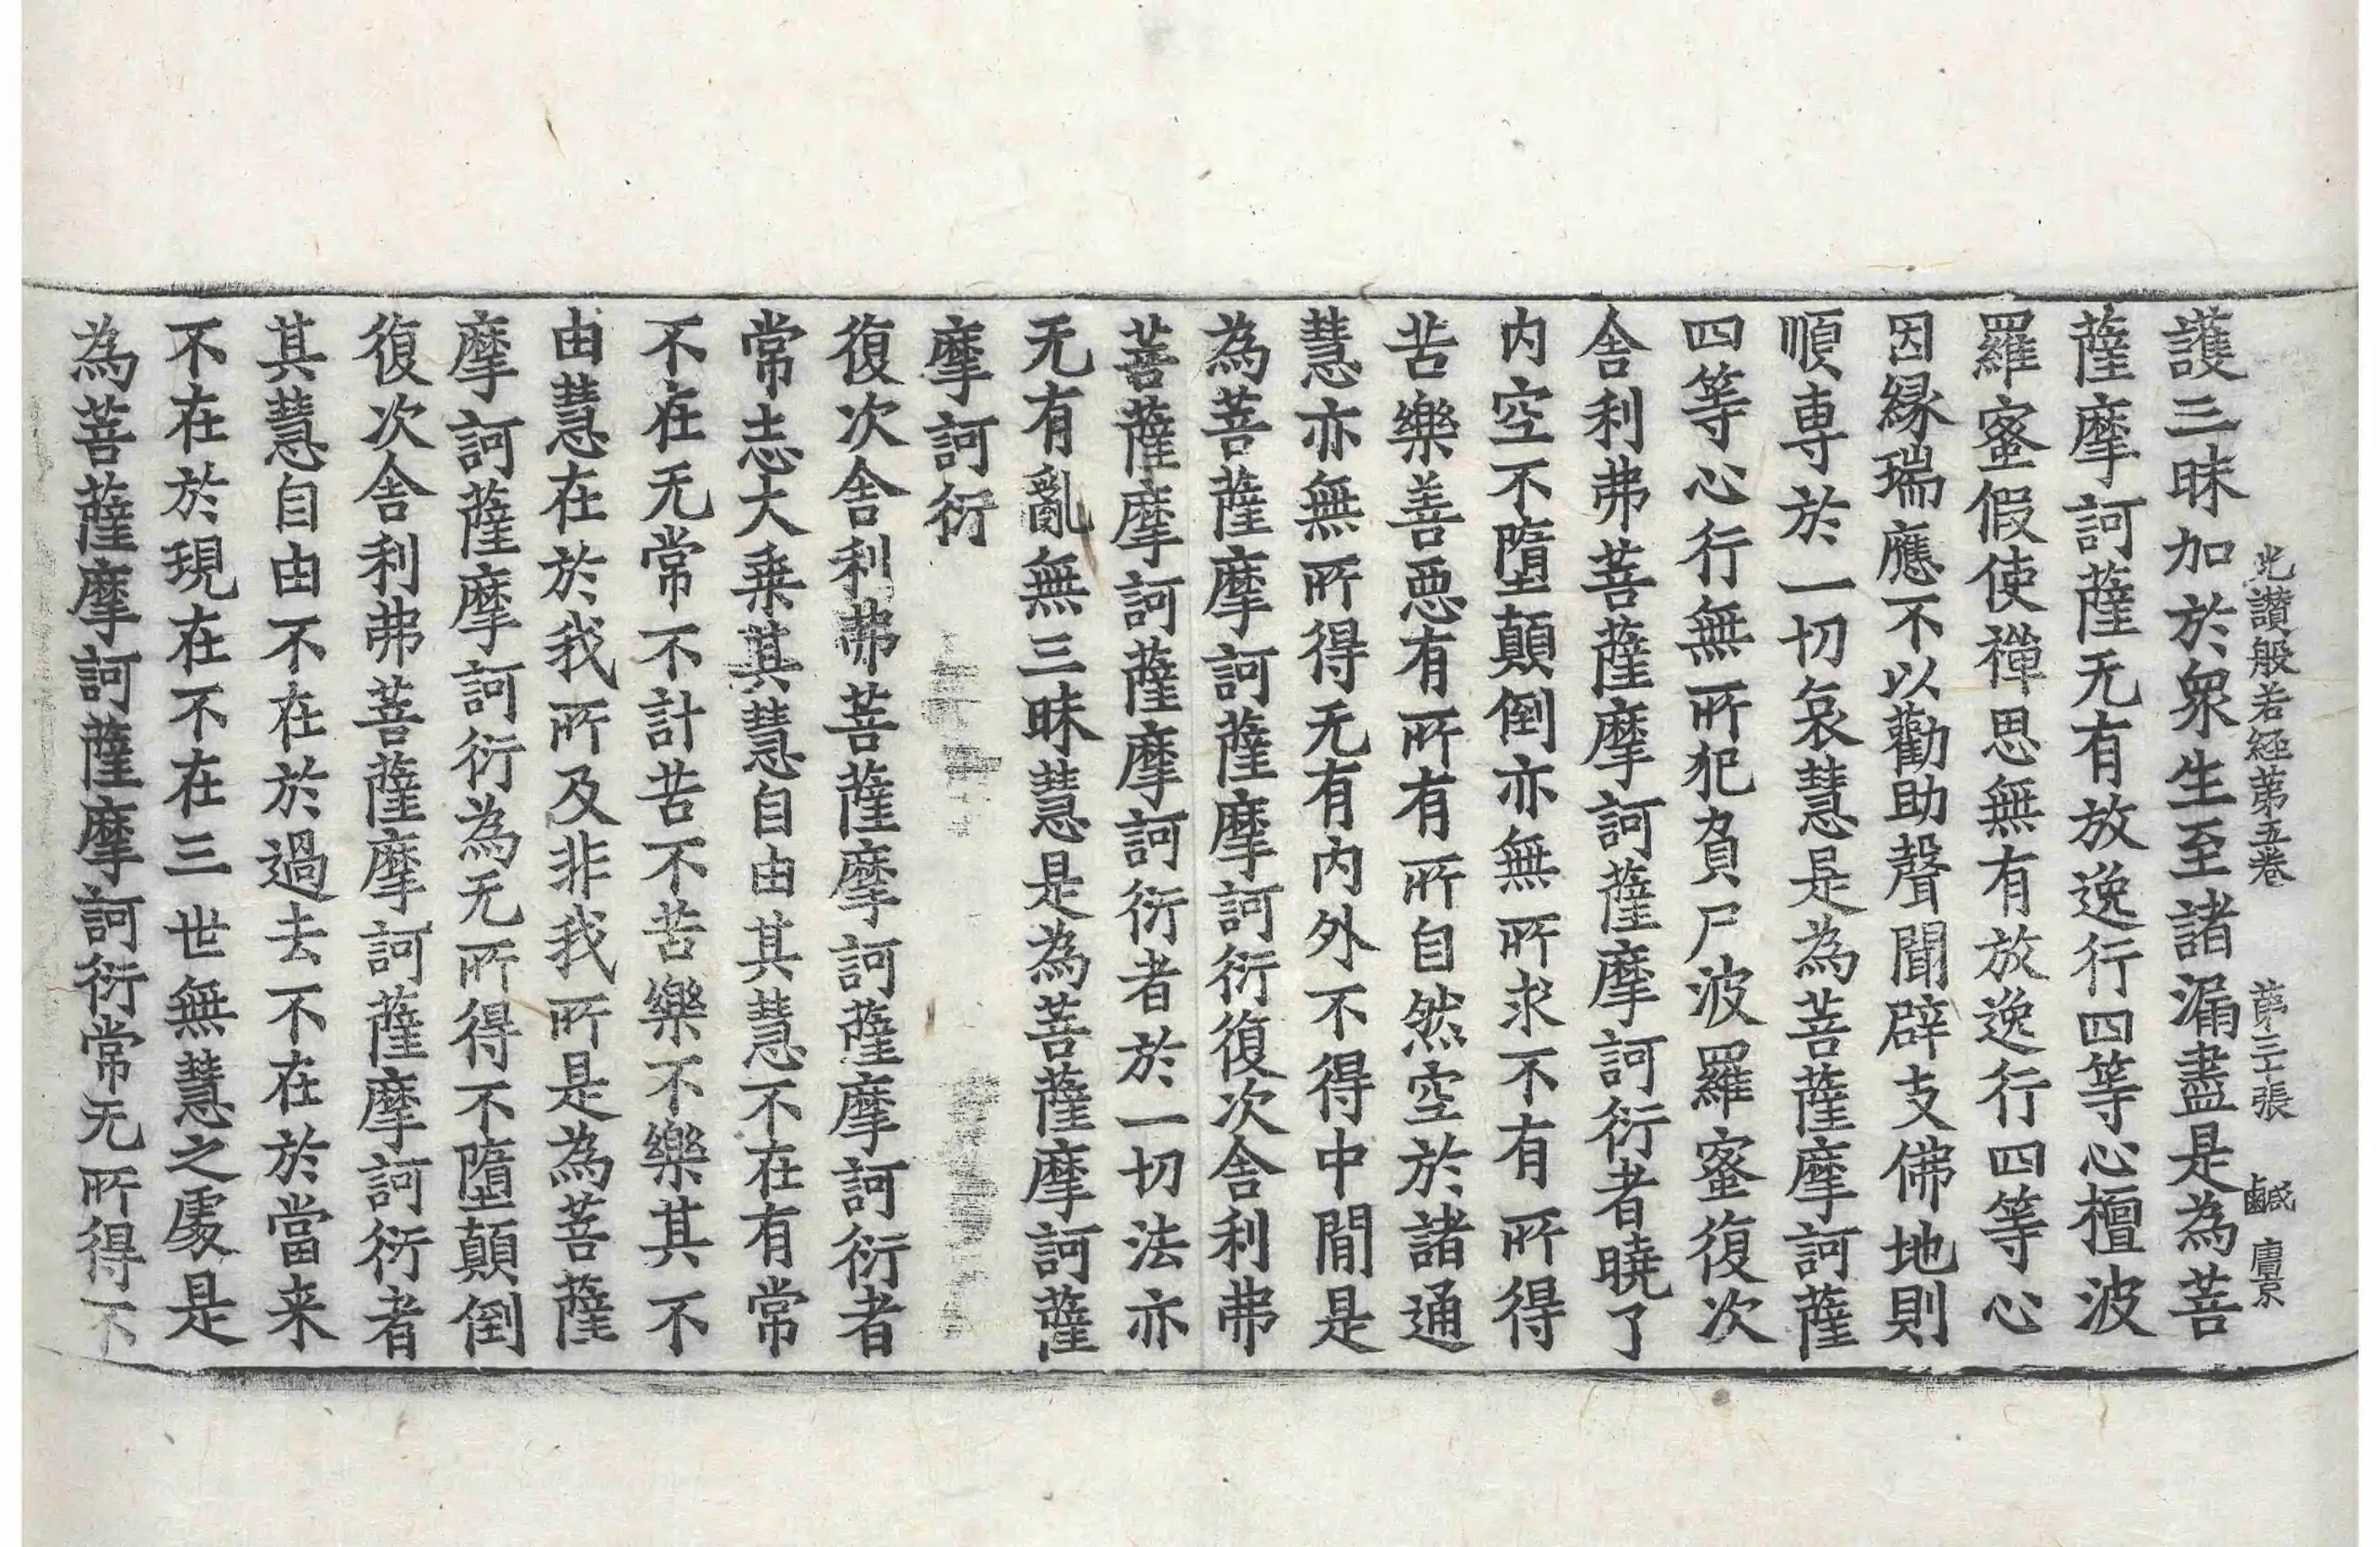 光讃般若經第五卷 第三十張 鹹 唐京
護三昧加於衆生至諸漏盡是為菩
薩摩訶薩无有放逸行四等心檀波
羅蜜假使禪思無有放逸行四等心
因縁瑞應不以勸助聲聞辟支佛地則
順専於一切哀慧是為菩薩摩訶薩
四等心行無所犯負尸波羅蜜復次
舎利弗菩薩摩訶薩摩訶衍者曉了
内空不墮顛倒亦無所求不有所得
苦樂善惡有所有所自然空於諸通
慧亦無所得无有内外不得中間是
為菩薩摩訶薩摩訶衍復次舎利弗
菩薩摩訶薩摩訶衍者於一切法亦
无有亂無三昧慧是為菩薩摩訶薩
摩訶衍
復次舎利弗菩薩摩訶薩摩訶衍者
常志大乗其慧自由其慧不在有常
不在无常不計苦不苦樂不樂其不
由慧在於我所及非我所是為菩薩
摩訶薩摩訶衍為无所得不墮顛倒
復次舎利弗菩薩摩訶薩摩訶衍者
其慧自由不在於過去不在於當来
不在於現在不在三世無慧之處是
為菩薩摩訶薩摩訶衍常无所得不